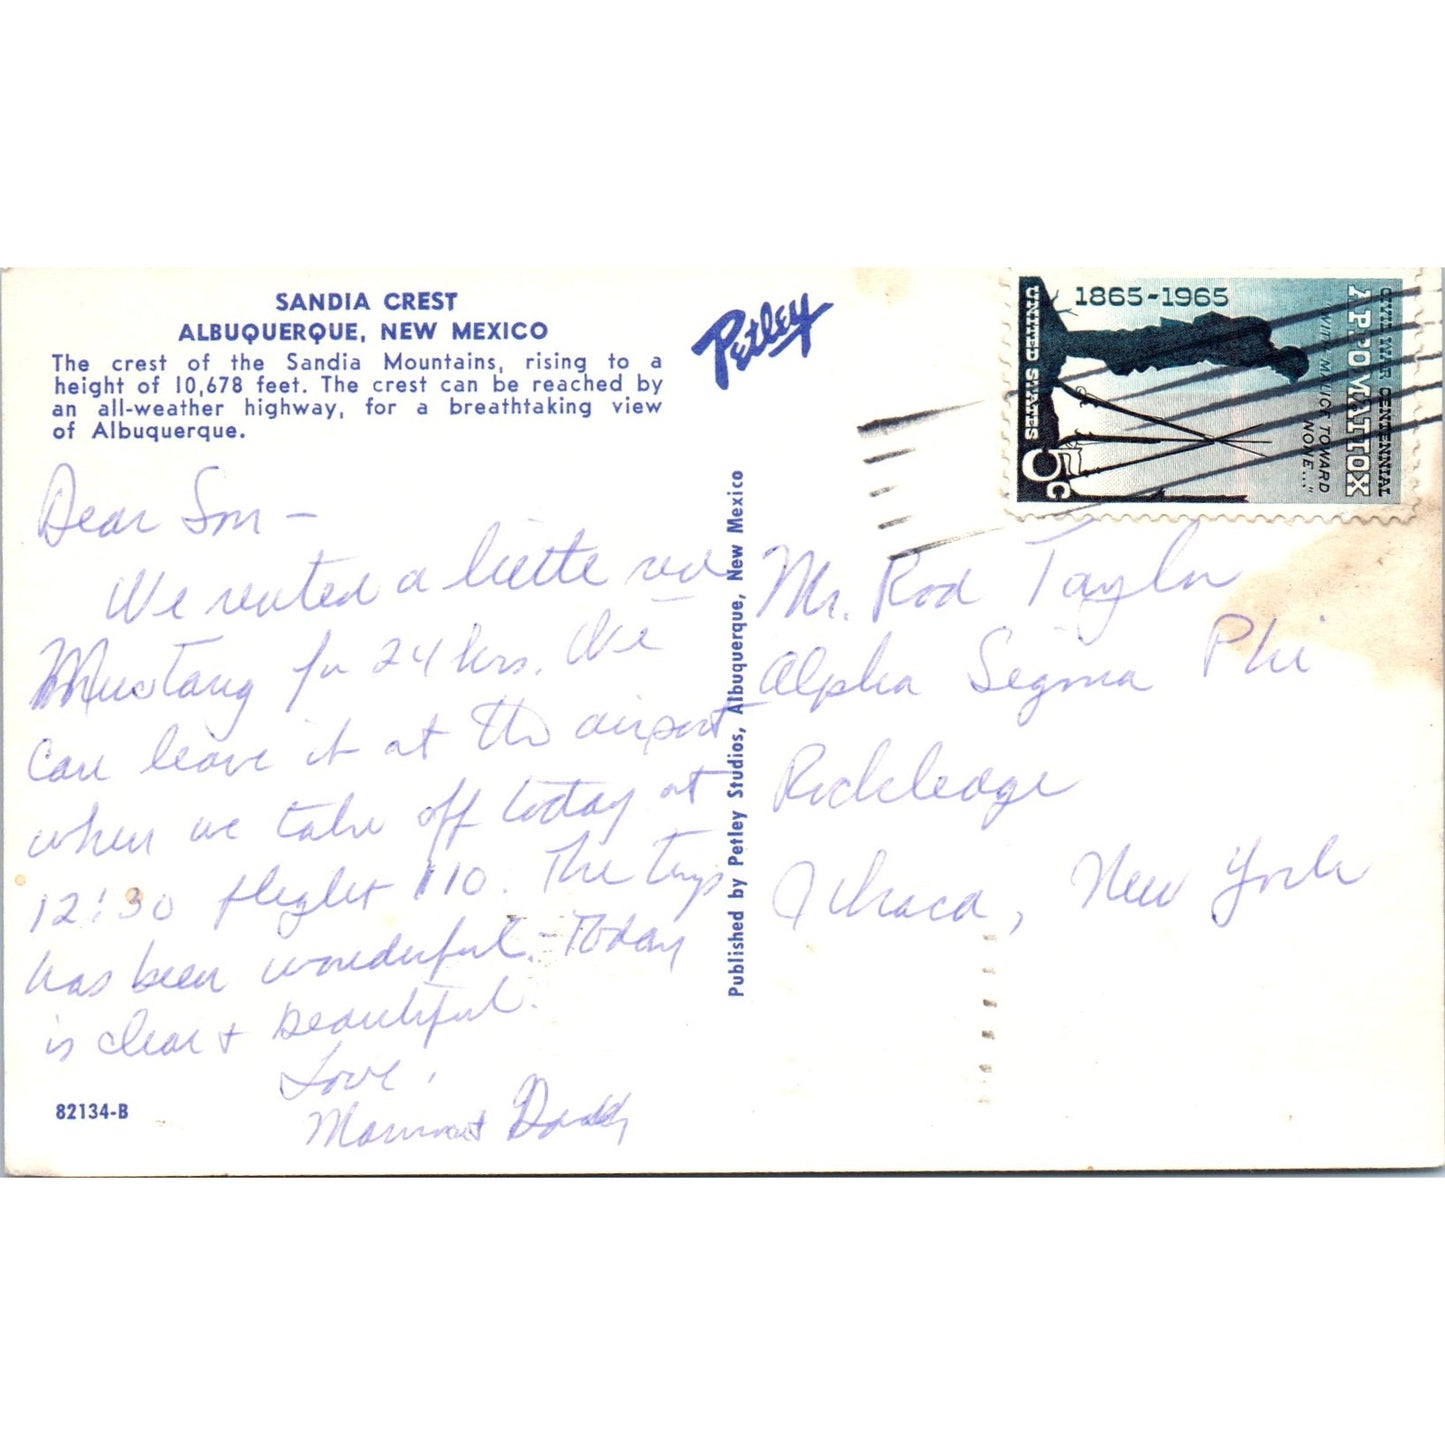 SANDIA CREST
ALBUQUERQUE, NEW MEXICO
The crest of the Sandia Mountains, rising to a
height of 10,678 feet. The crest can be reached by
an all-weather highway, for a breathtaking view
of Albuquerque.
Dear Son -
We rented a little red
Mustang for 24 hrs. We
can leave it at the airport
when we take off today at
12:30 flight 110. The trip
has been wonderful. Today
is clear + beautiful.
Love,
Mom + Daddy
82134-B
Petley
Published by Petley Studios, Albuquerque, New Mexico
UNITED STATES
5c
1865-1965
"WITH MALICE TOWARD
NONE..."
APPOMATTOX
CIVIL WAR CENTENNIAL
Mr. Rod Taylor
Alpha Sigma Phi
Rockledge
Ithaca, New York